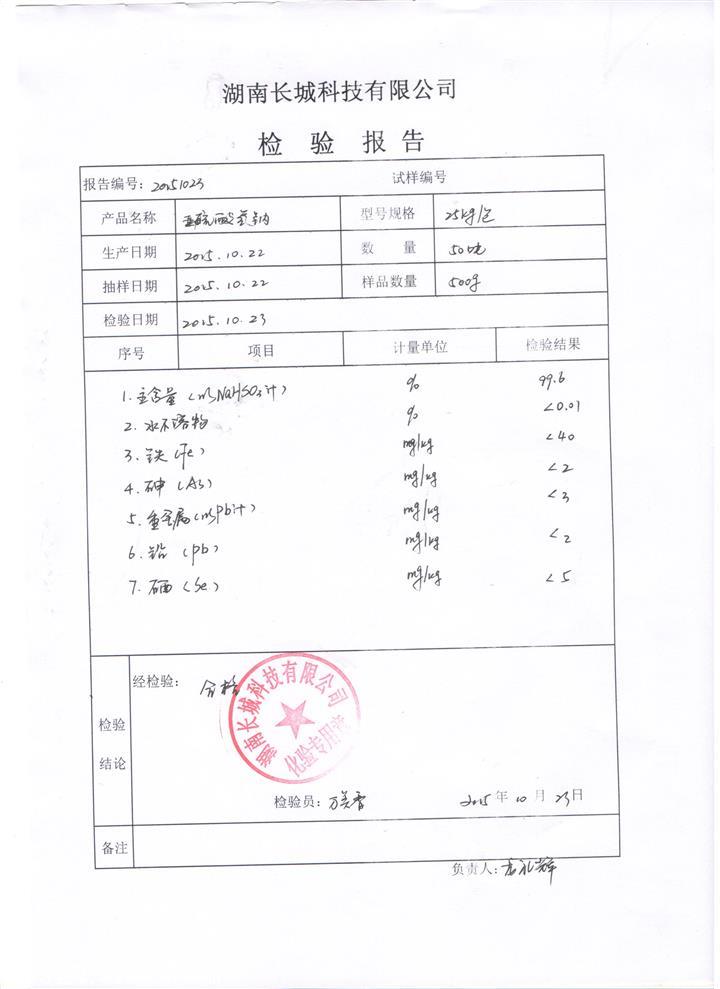 湖南长城科技有限公司
检 验 报 告
报告编号: 20151023 试样编号
产品名称 亚硫酸氢钠 型号规格 25kg/包
生产日期 2015.10.22 数 量 50吨
抽样日期 2015.10.22 样品数量 500g
检验日期 2015.10.23
序号 项目 计量单位 检验结果
1. 主含量(以NaHSO3计) % 99.6
2. 水不溶物 % <0.01
3. 铁(Fe) mg/kg <40
4. 砷(As) mg/kg <2
5. 重金属(以Pb计) mg/kg <3
6. 铅(pb) mg/kg <2
7. 硒(Se) mg/kg <5
经检验: 合格
湖南长城科技有限公司
化验专用章
检验
结论
检验员: 万美香 2015年10月23日
备注
负责人: